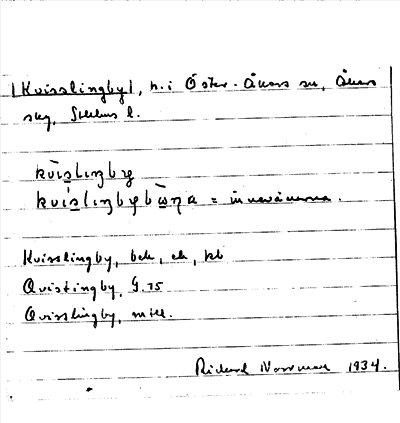 [Kvisslingby], h. i Öster-Åkers sn, Åkers
skg, Sthlms l.
kvìsliŋby
kvìsliŋbybὼηα = invånarna.
Kvisslingby, bek, ek, kb
Qvistingby, G. 75
Qvisslingby, mtl.
Rickard Norrman 1934.